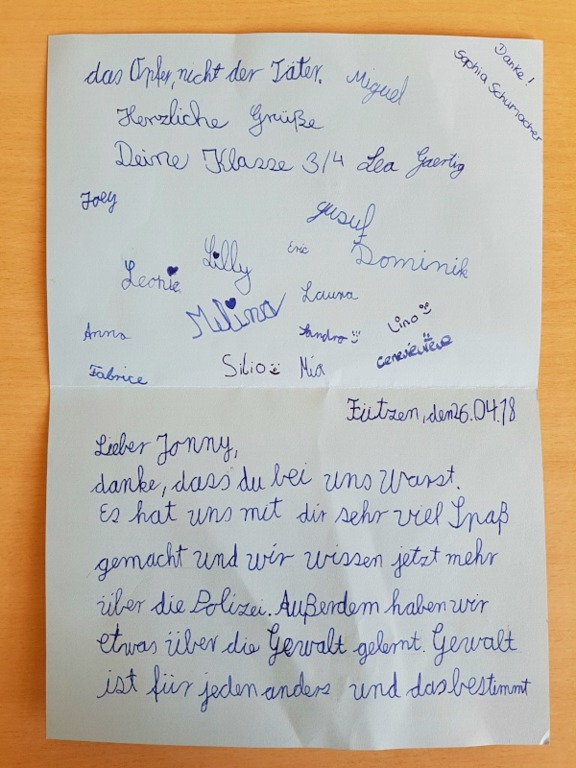 das Opfer, nicht der Täter. Miguel
Danke!
Sophia Schumacher
Herzliche Grüße
Deine Klasse 3/4 Lea Gaertig
Joey
Yusuf
Lilly
Eric
Dominik
Leonie
Laura
Milina
Lino
Anna
Sandro
Genevieve
Silio
Mia
Fabrice
Fützen, den 26.04.18
Lieber Jonny,
danke, dass du bei uns warst.
Es hat uns mit dir sehr viel Spaß
gemacht und wir wissen jetzt mehr
über die Polizei. Außerdem haben wir
etwas über die Gewalt gelernt. Gewalt
ist für jeden anders und das bestimmt